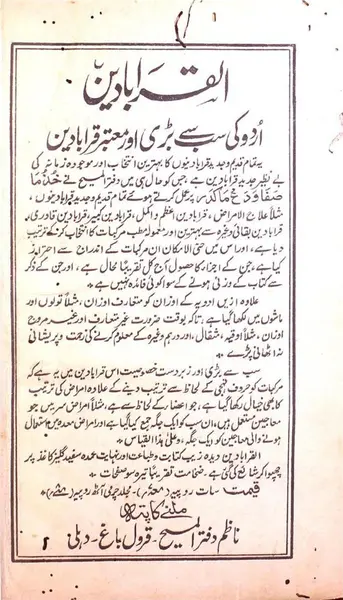 القرابادین
اُردو کی سب سے بڑی اور معتبر قرابادین
یہ تمام قدیم و جدید قرابادینوں کا بہترین انتخاب اور موجودہ زمانہ کی
بے نظیر جدید قرابادین ہے، جس کو حال ہی میں دفتر المسیح نے خُذ مَا
صَفَا وَ دَعْ مَا کَدَرَ پر عمل کرتے ہوئے تمام قدیم و جدید قرابادینوں،
مثلاً علاج الامراض، قرابادین اعظم و اکمل، قرابادین کبیر، قرابادین قادری،
قرابادین بقائی وغیرہ سے بہترین اور معمولہ مطب مرکبات کا انتخاب کر کے ترتیب
دیا ہے، اور اس میں حتی الامکان ان مرکبات کے اندراج سے احتراز
کیا ہے، جن کے اجزاء کا حصول آج کل تقریباً محال ہے، اور جن کے ذکر
سے کتاب کے وزنی ہونے کے سوا کوئی فائدہ نہیں ہے
علاوہ ازیں ادویہ کے اوزان کو متعارف اوزان، مثلاً تولوں اور
ماشوں میں لکھا گیا ہے، تاکہ بوقت ضرورت غیر متعارف اور غیر مروج
اوزان، مثلاً اوقیہ، مثقال، اور درہم وغیرہ کے معلوم کرنے کی زحمت و پریشانی
نہ اٹھانی پڑے
سب سے بڑی اور زبردست خصوصیت اس قرابادین میں یہ ہے کہ
مرکبات کو حروف تہجی کے لحاظ سے ترتیب دینے کے علاوہ امراض کی ترتیب
کا بھی خیال رکھا گیا ہے، جو اعضاء کے لحاظ سے ہے، مثلاً امراض سر میں جو
معاجین مستعمل ہیں، ان سب کو ایک جگہ جمع کیا گیا ہے اور امراض معدہ میں استعمال
ہونے والی معاجین کو ایک جگہ، وعلیٰ ہذا القیاس
القرابادین دیدہ زیب کتابت و طباعت اور نہایت عمدہ سفید گلیز کاغذ پر
چھپوا کر شائع کی گئی ہے، ضخامت تقریباً تیرہ سو صفحات
قیمت سات روپیہ مجلد چرمی آٹھ روپیہ
ملنے کا پتہ
ناظم دفتر المسیح - قرول باغ - دہلی